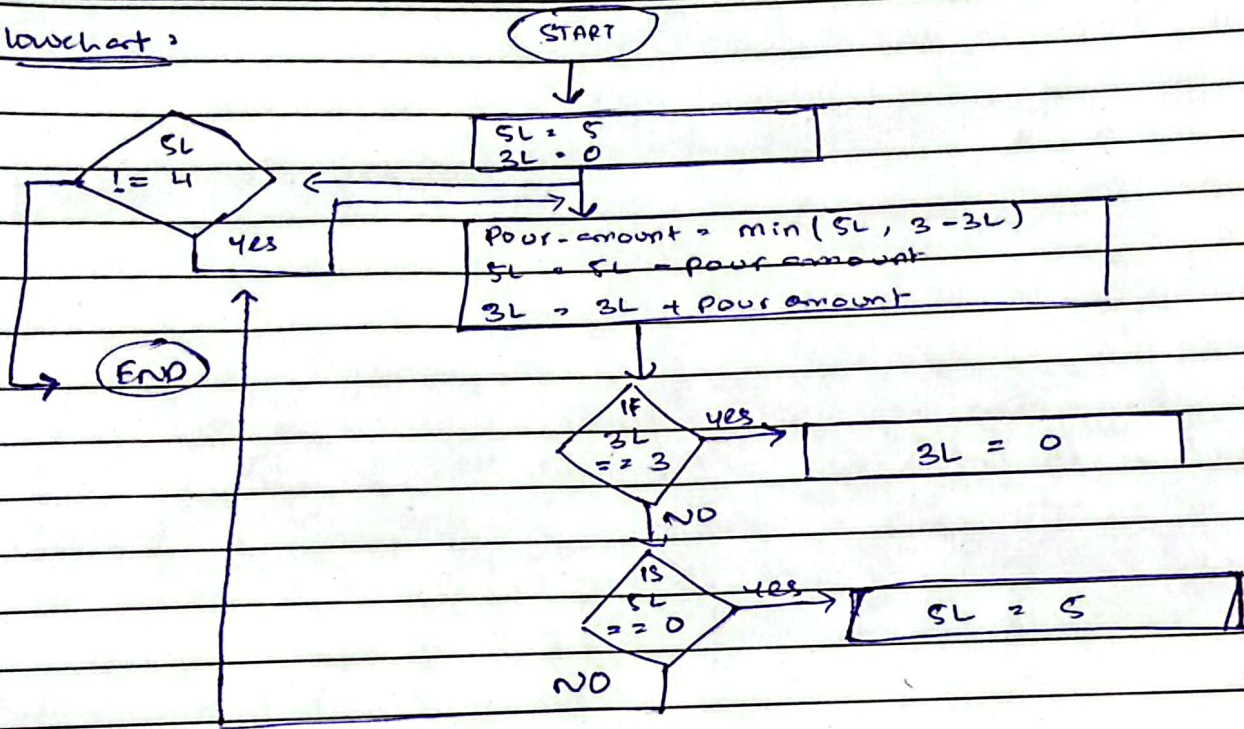 lowchart :
START
5L = 5
3L = 0
5L
!= 4
yes
Pour-amount = min ( 5L , 3 - 3L )
5L = 5L - pour amount
3L = 3L + pour amount
END
IF
3L
== 3
yes
3L = 0
NO
IS
5L
== 0
yes
5L = 5
NO